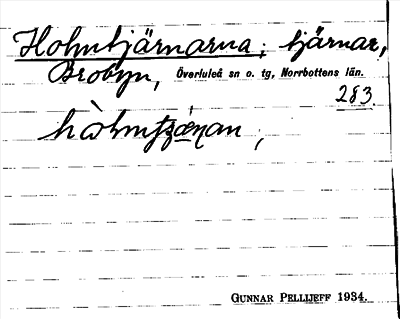 Holmtjärnarna; tjärnar,
Brobyn, Överluleå sn o. tg, Norrbottens län.
283.
GUNNAR PELLIJEFF 1934.